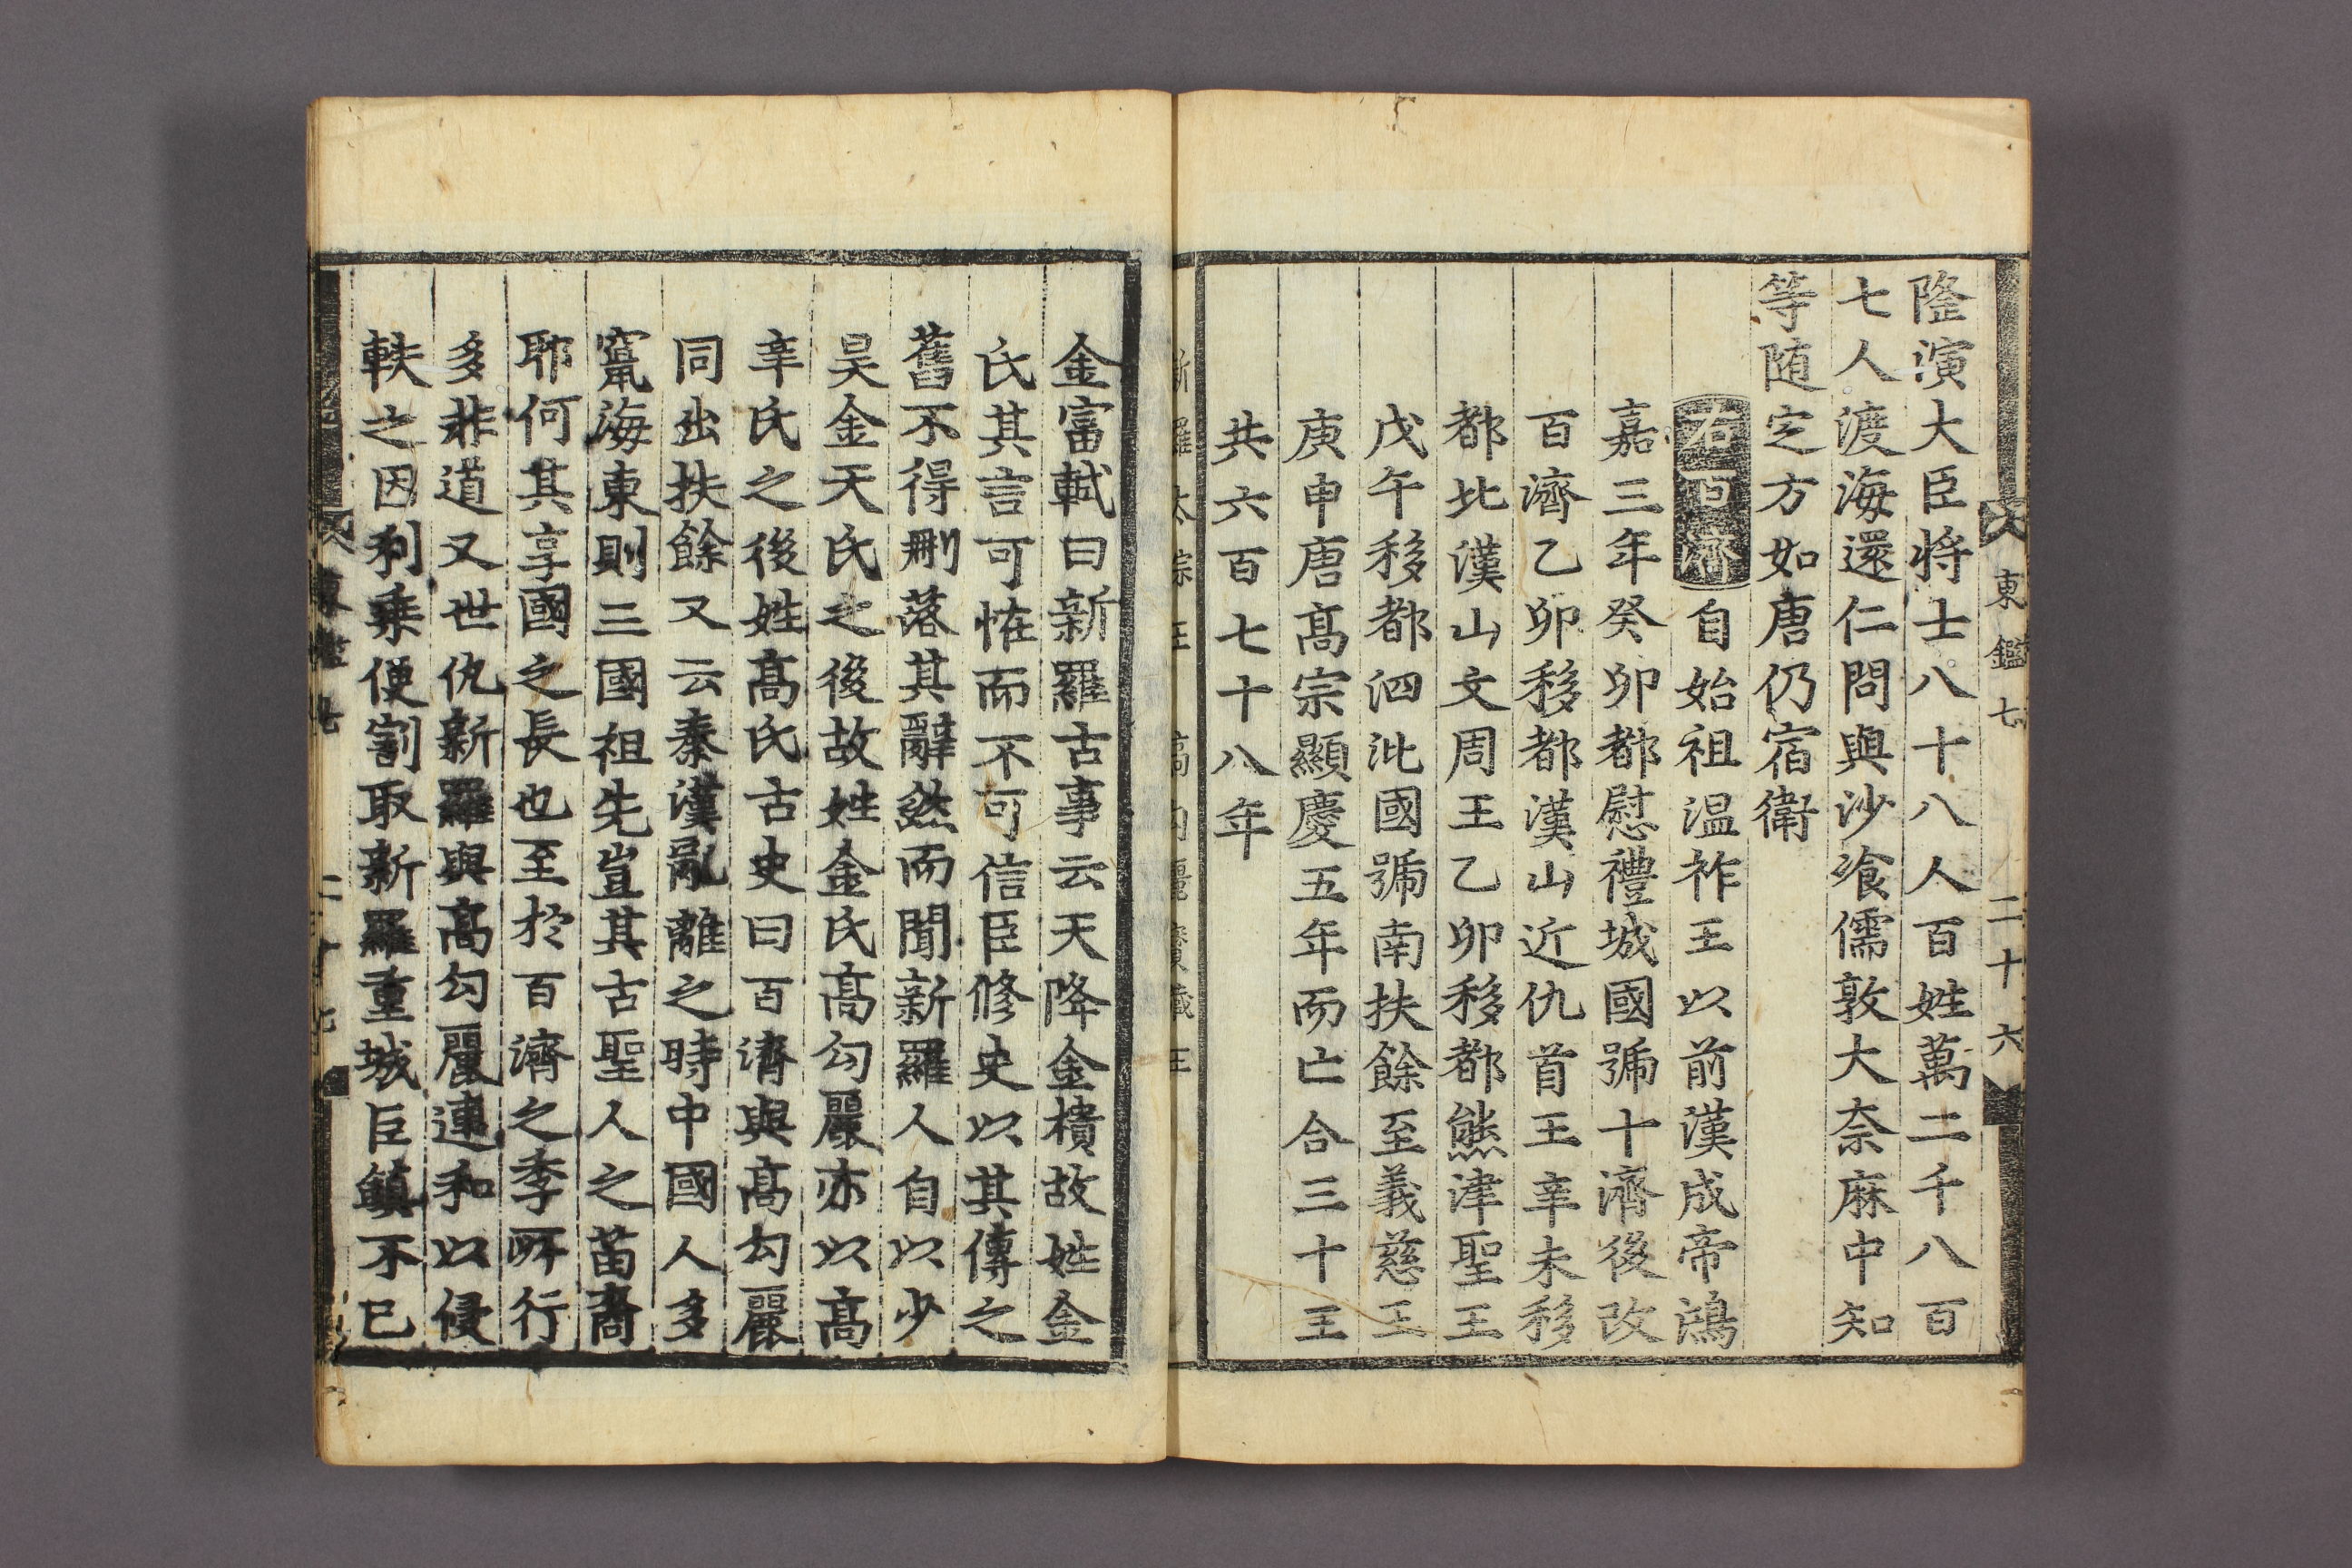 東鑑七
二十六
隆演大臣將士八十八人百姓萬二千八百
七人渡海還仁問與沙飡儒敦大奈麻中知
等随定方如唐仍宿衛
右百濟自始祖温祚王以前漢成帝鴻
嘉三年癸卯都慰禮城國號十濟後改
百濟乙卯移都漢山近仇首王辛未移
都北漢山文周王乙卯移都熊津聖王
戊午移都泗沘國號南扶餘至義慈王
庚申唐高宗顯慶五年而亡合三十王
共六百七十八年
金富軾曰新羅古事云天降金樻故姓金
氏其言可恠而不可信臣修史以其傳之
舊不得刪落其辭然而聞新羅人自以少
昊金天氏之後故姓金氏高勾麗亦以高
辛氏之後姓高氏古史曰百濟與高勾麗
同出扶餘又云秦漢亂離之時中國人多
竄海東則三國祖先豈其古聖人之苗裔
耶何其享國之長也至於百濟之季所行
多非道又世仇新羅與高勾麗連和以侵
軼之因利乗便割取新羅重城巨鎮不已